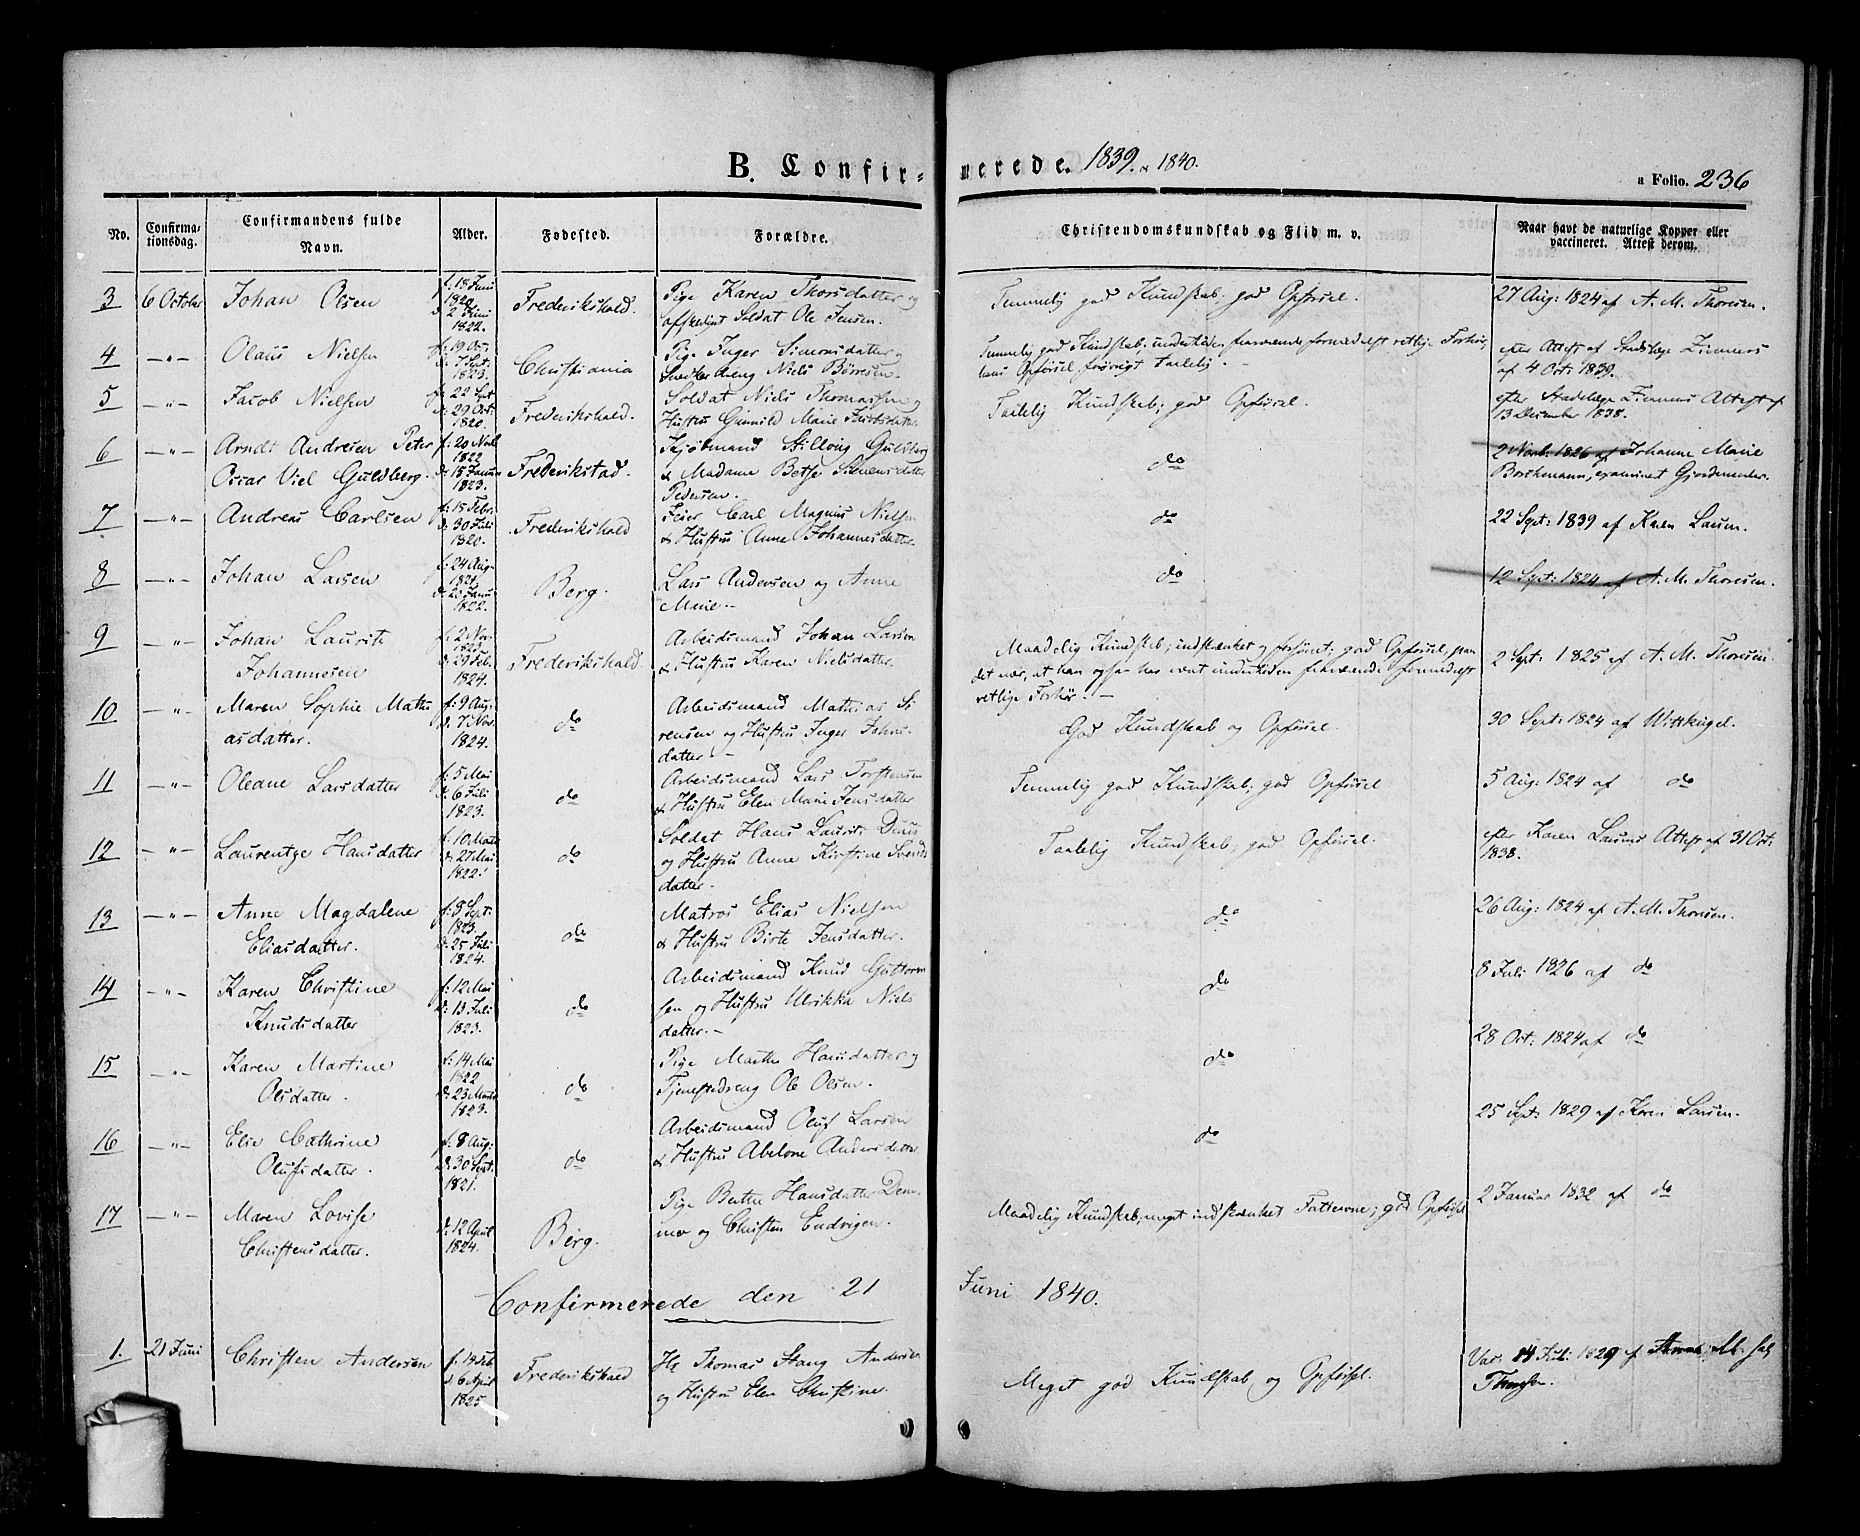 B. Confir-merede. 1839 & 1840.
a Folio. 236
No. Confirmationsdag. Confirmandens fulde Navn. Alder. Fødested. Forældre. Christendomskundskab og Flid m. v. Naar havt de naturlige Kopper eller vaccineret. Attest derom.
3 6 October Johan Olsen f: 18 Juni 1820. d: 2 Juni 1822. Frederikshald. Pige Karen Thorsdatter og
afskediget Soldat Ole Jensen. Temmelig god Kundskab; god Opførsel. 27 Aug: 1824 af A. M. Thoresen.
4 —"— Olaus Nielsen f: 19 Oct: d: 7 Sept: 1823. Christiania Pige Inger Simonsdatter og
Niels Börresen. Temmelig god Kundskab; undertiden fraværende formedelst retlige Forhör,
hans Opførsel forøvrigt taalelig. efter Attest af Stadslæge Zimmers
af 4 Oct: 1839.
5 —"— Jacob Nielsen f: 22 Sept d: 29 Oct: 1820. Frederikshald. Soldat Niels Thomassen og
Hustru Gunnild Marie Taalelig Kundskab; god Opførsel. efter Stadslæge Zimmers Attest af
13 December 1838.
6 —"— Arndt Andresen Peter
Oscar Viel Guldberg. f: 20 Novb. 1822 d: 15 Januar 1823. Frederikstad. Kjøbmand Guldberg
& Madame Betsy
Pedersen. do 2 Novb: 1826 af Johanne Marie
Borchmann, examineret Gjordemoder.
7 —"— Andreas Carlsen f: 15 Febr: d: 30 Juli 1820. Frederikshald Feier Carl Magnus Nielsen
& Hustru Anne Johannesdatter. do 22 Sept: 1839 af Karen Larsen.
8 —"— Johan Larsen f: 24 Aug: 1821 d: 20 Janu: 1822. Berg. Lars Andersen og Anne
Marie.— do 12 Sept: 1824 af A. M. Thoresen.
9 —"— Johan Laurits
Johannesen f: 2 Nov: 1823 d: 29 Feb. 1824. Frederikshald. Arbeidsmand Johan Larsen
& Hustru Karen Nielsdatter. Maadelig Kundskab; indskrænket og forsømt; god Opførsel, paa
det nær, at han ogsaa har været undertiden fraværende formedelst
retlige Forhør.— 2 Sept: 1825 af A. M. Thoresen.
10 —"— Maren Sophie Mathi
asdatter. f: 9 Aug: d. 7 Nov: 1824. do Arbeidsmand Mathias Si
rensen og Hustru Inger Johns
datter.— God Kundskab og Opførsel. 30 Sept: 1824 af Wittkugel.
11 —"— Oleane Larsdatter f: 5 Mai d: 6 Juli 1823. do Arbeidsmand Lars Torstensen
& Hustru Elen Marie Jensdatter Temmelig god Kundskab; god Opførsel 5 Aug: 1824 af do
12 —"— Laurentze Hansdatter f: 10 Marts d: 27 Mai 1822. do Soldat Hans Laurits
og Hustru Anne Kirstine Svends
datter. Taalelig Kundskab; god Opførsel. efter Karen Larsens Attest af 31 Oct:
1838.
13 —"— Anne Magdalene
Eliasdatter. f: 8 Sept: 1823. d: 25 Juli 1824. do Matros Elias Nielsen
& Hustru Birte Jensdatter. do 26 Aug: 1824 af A. M. Thoresen.
14 —"— Karen Christine
Knudsdatter f: 12 Mai d: 13 Juli 1823. do Arbeidsmand Knud Guttorm
sen og Hustru Ulrikka Niels
datter.— do 8 Juli 1826 af do
15 —"— Karen Martine
Olsdatter. f: 14 Mai 1822 d: 23 Marts 1823. do Pige Marthe Hansdatter og
Tjenestedreng Ole Olsen. do 28 Oct: 1824 af do
16 —"— Elie Cathrine
Olufsdatter. f: 8 Aug: d: 30 Sept: 1821. do Arbeidsmand Oluf Larsen
& Hustru Abelone Andersdatter do 25 Sept: 1829 af Karen Larsen.
17 —"— Maren Lovise
Christensdatter. d: 12 April 1824. Berg. Pige Berthe Hansdatter
og Christen Endrigen. Maadelig Kundskab; meget indskrænket Fatteevne; god Opførsel 2 Januar 1832 af do
Confirmerede den 21 Juni 1840.
1. 21 Juni Christen Andersen f: 14 Feb d. 6 April 1825 Frederikshald Hr Thomas Stang Andersen
og Hustru Elen Christine. Meget god Kundskab og Opførsel. Vac: 14 Juli: 1829 af M.